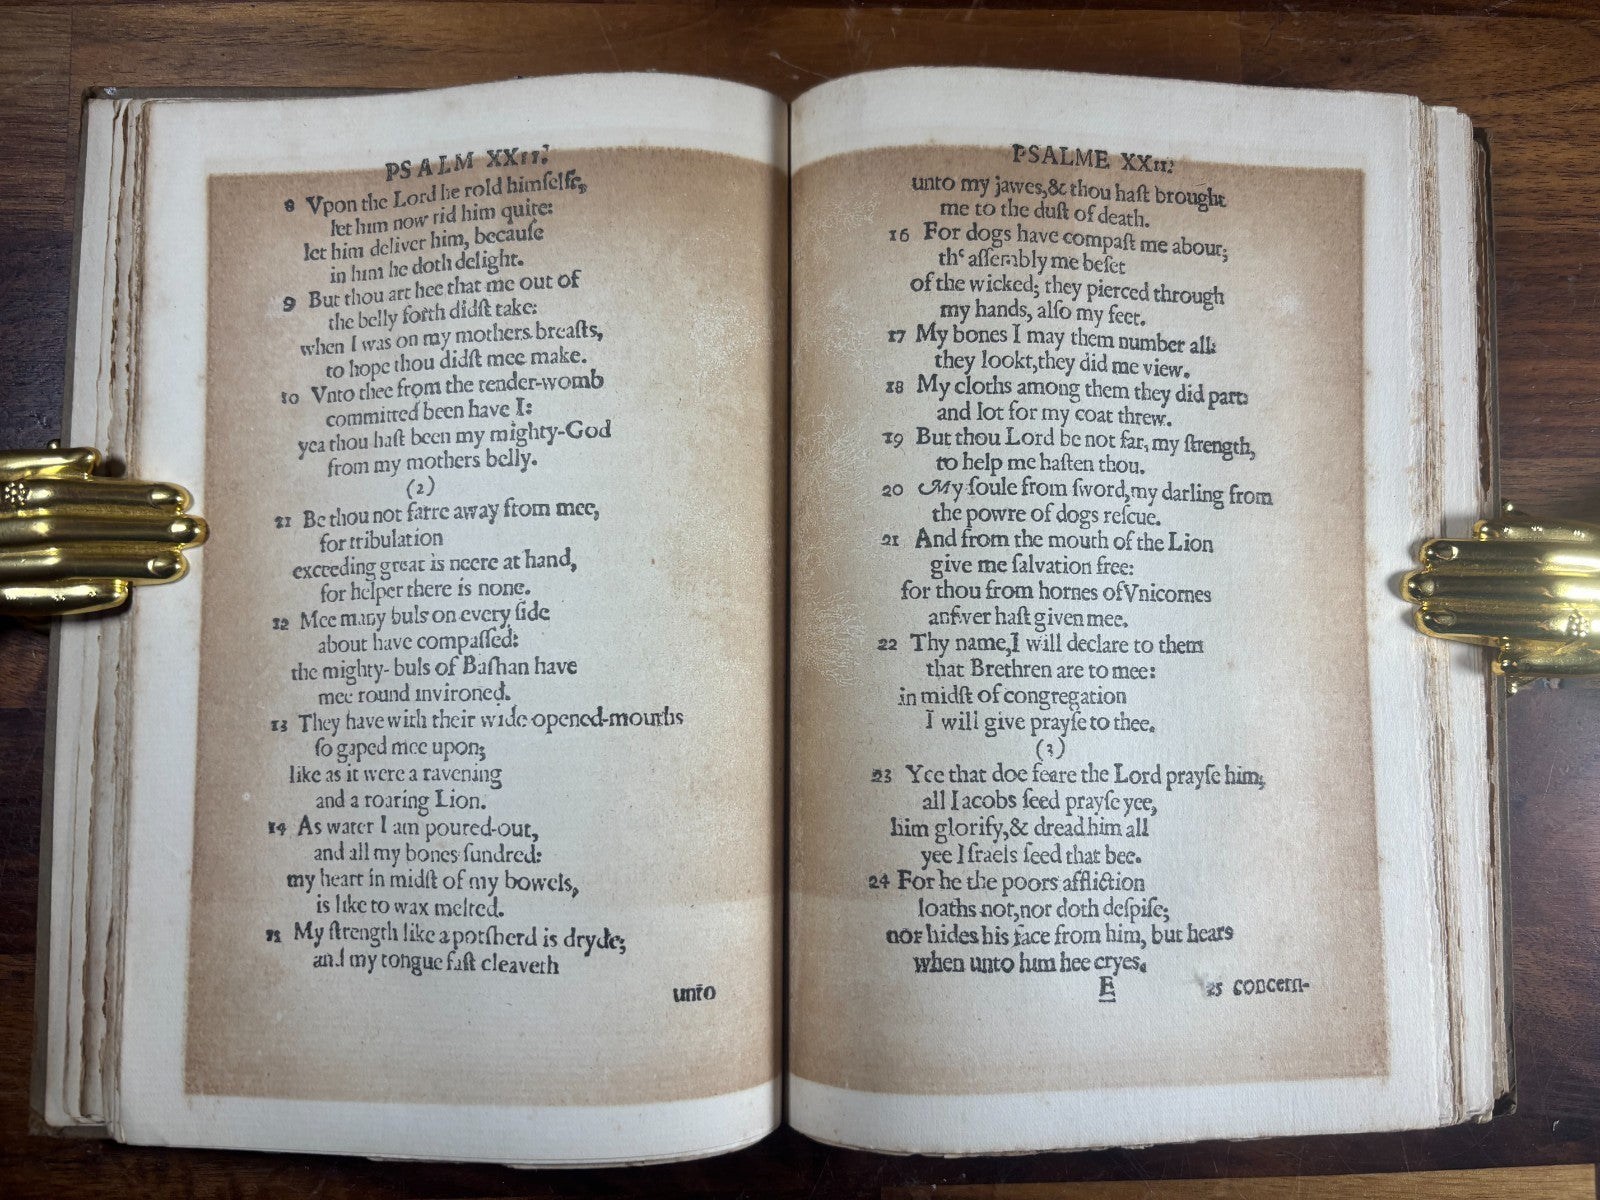 PSALM XXII.
8 Vpon the Lord he rold himſelfe,
let him now rid him quite:
let him deliver him, becauſe
in him he doth delight.
9 But thou art hee that me out of
the belly forth didſt take:
when I was on my mothers breaſts,
to hope thou didſt mee make.
10 Vnto thee from the tender-womb
committed been have I:
yea thou haſt been my mighty-God
from my mothers belly.
(2)
11 Be thou not farre away from mee,
for tribulation
exceeding great is neere at hand,
for helper there is none.
12 Mee many buls on every ſide
about have compaſſed:
the mighty-buls of Baſhan have
mee round invironed.
13 They have with their wide-opened-mouths
ſo gaped mee upon;
like as it were a ravening
and a roaring Lion.
14 As water I am poured-out,
and all my bones ſundred:
my heart in midſt of my bowels,
is like to wax melted.
15 My ſtrength like a potſherd is dryde;
and my tongue faſt cleaveth
unto
PSALME XXII.
unto my jawes,& thou haſt brought
me to the duſt of death.
16 For dogs have compaſt me about;
th' aſſembly me beſet
of the wicked; they pierced through
my hands, alſo my feet.
17 My bones I may them number all:
they lookt,they did me view.
18 My cloths among them they did part:
and lot for my coat threw.
19 But thou Lord be not far, my ſtrength,
to help me haſten thou.
20 My ſoule from ſword,my darling from
the powre of dogs reſcue.
21 And from the mouth of the Lion
give me ſalvation free:
for thou from hornes of Vnicornes
anſwer haſt given mee.
22 Thy name,I will declare to them
that Brethren are to mee:
in midſt of congregation
I will give prayſe to thee.
(3)
23 Yee that doe feare the Lord prayſe him;
all Iacobs ſeed prayſe yee,
him glorify,& dread him all
yee Iſraels ſeed that bee.
24 For he the poors affliction
loaths not,nor doth deſpiſe;
nor hides his face from him, but hears
when unto him hee cryes.
E
25 concern-